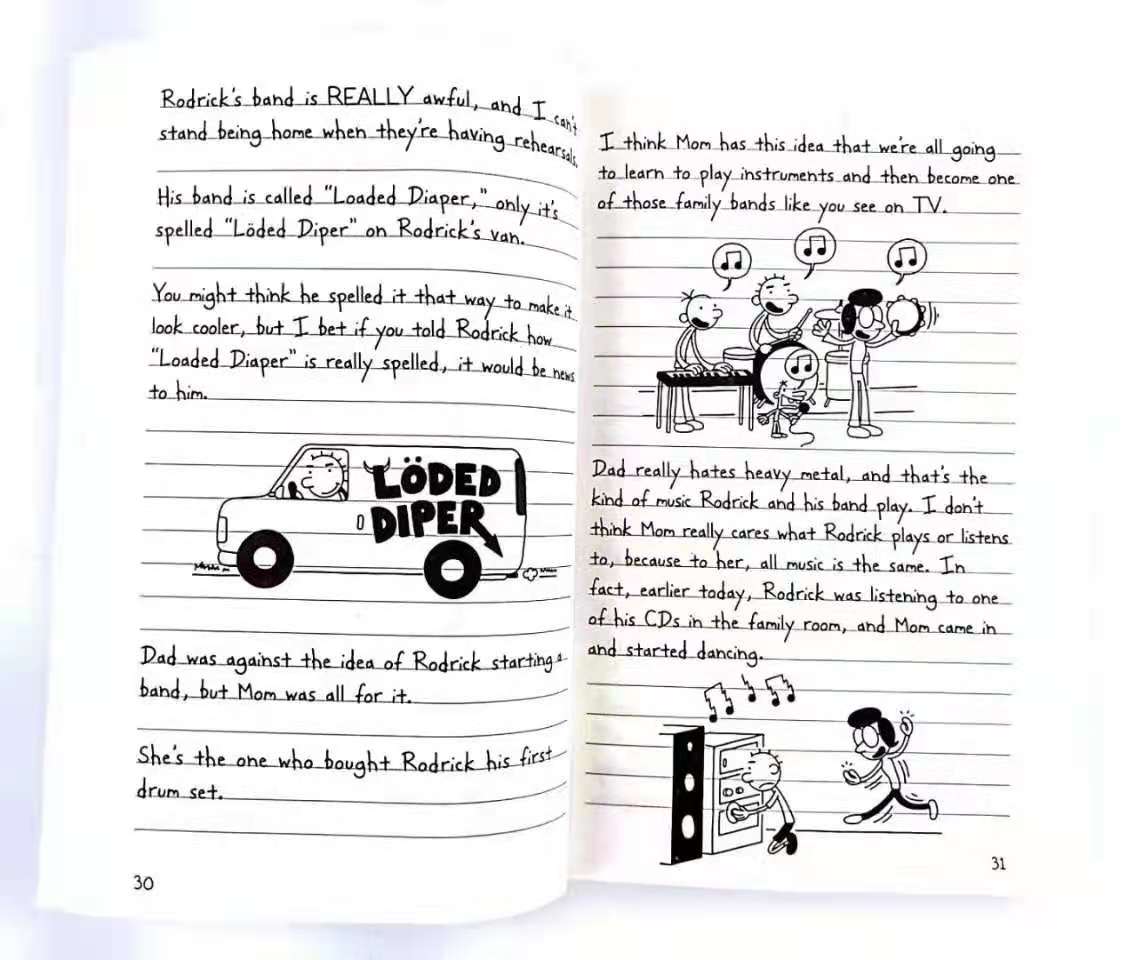 Rodrick's band is REALLY awful, and I can't
stand being home when they're having rehearsals.
His band is called "Loaded Diaper," only it's
spelled "Löded Diper" on Rodrick's van.
You might think he spelled it that way to make it
look cooler, but I bet if you told Rodrick how
"Loaded Diaper" is really spelled, it would be news
to him.
LÖDED
DIPER
Dad was against the idea of Rodrick starting a
band, but Mom was all for it.
She's the one who bought Rodrick his first
drum set.
30
I think Mom has this idea that we're all going
to learn to play instruments and then become one
of those family bands like you see on TV.
Dad really hates heavy metal, and that's the
kind of music Rodrick and his band play. I don't
think Mom really cares what Rodrick plays or listens
to, because to her, all music is the same. In
fact, earlier today, Rodrick was listening to one
of his CDs in the family room, and Mom came in
and started dancing.
31